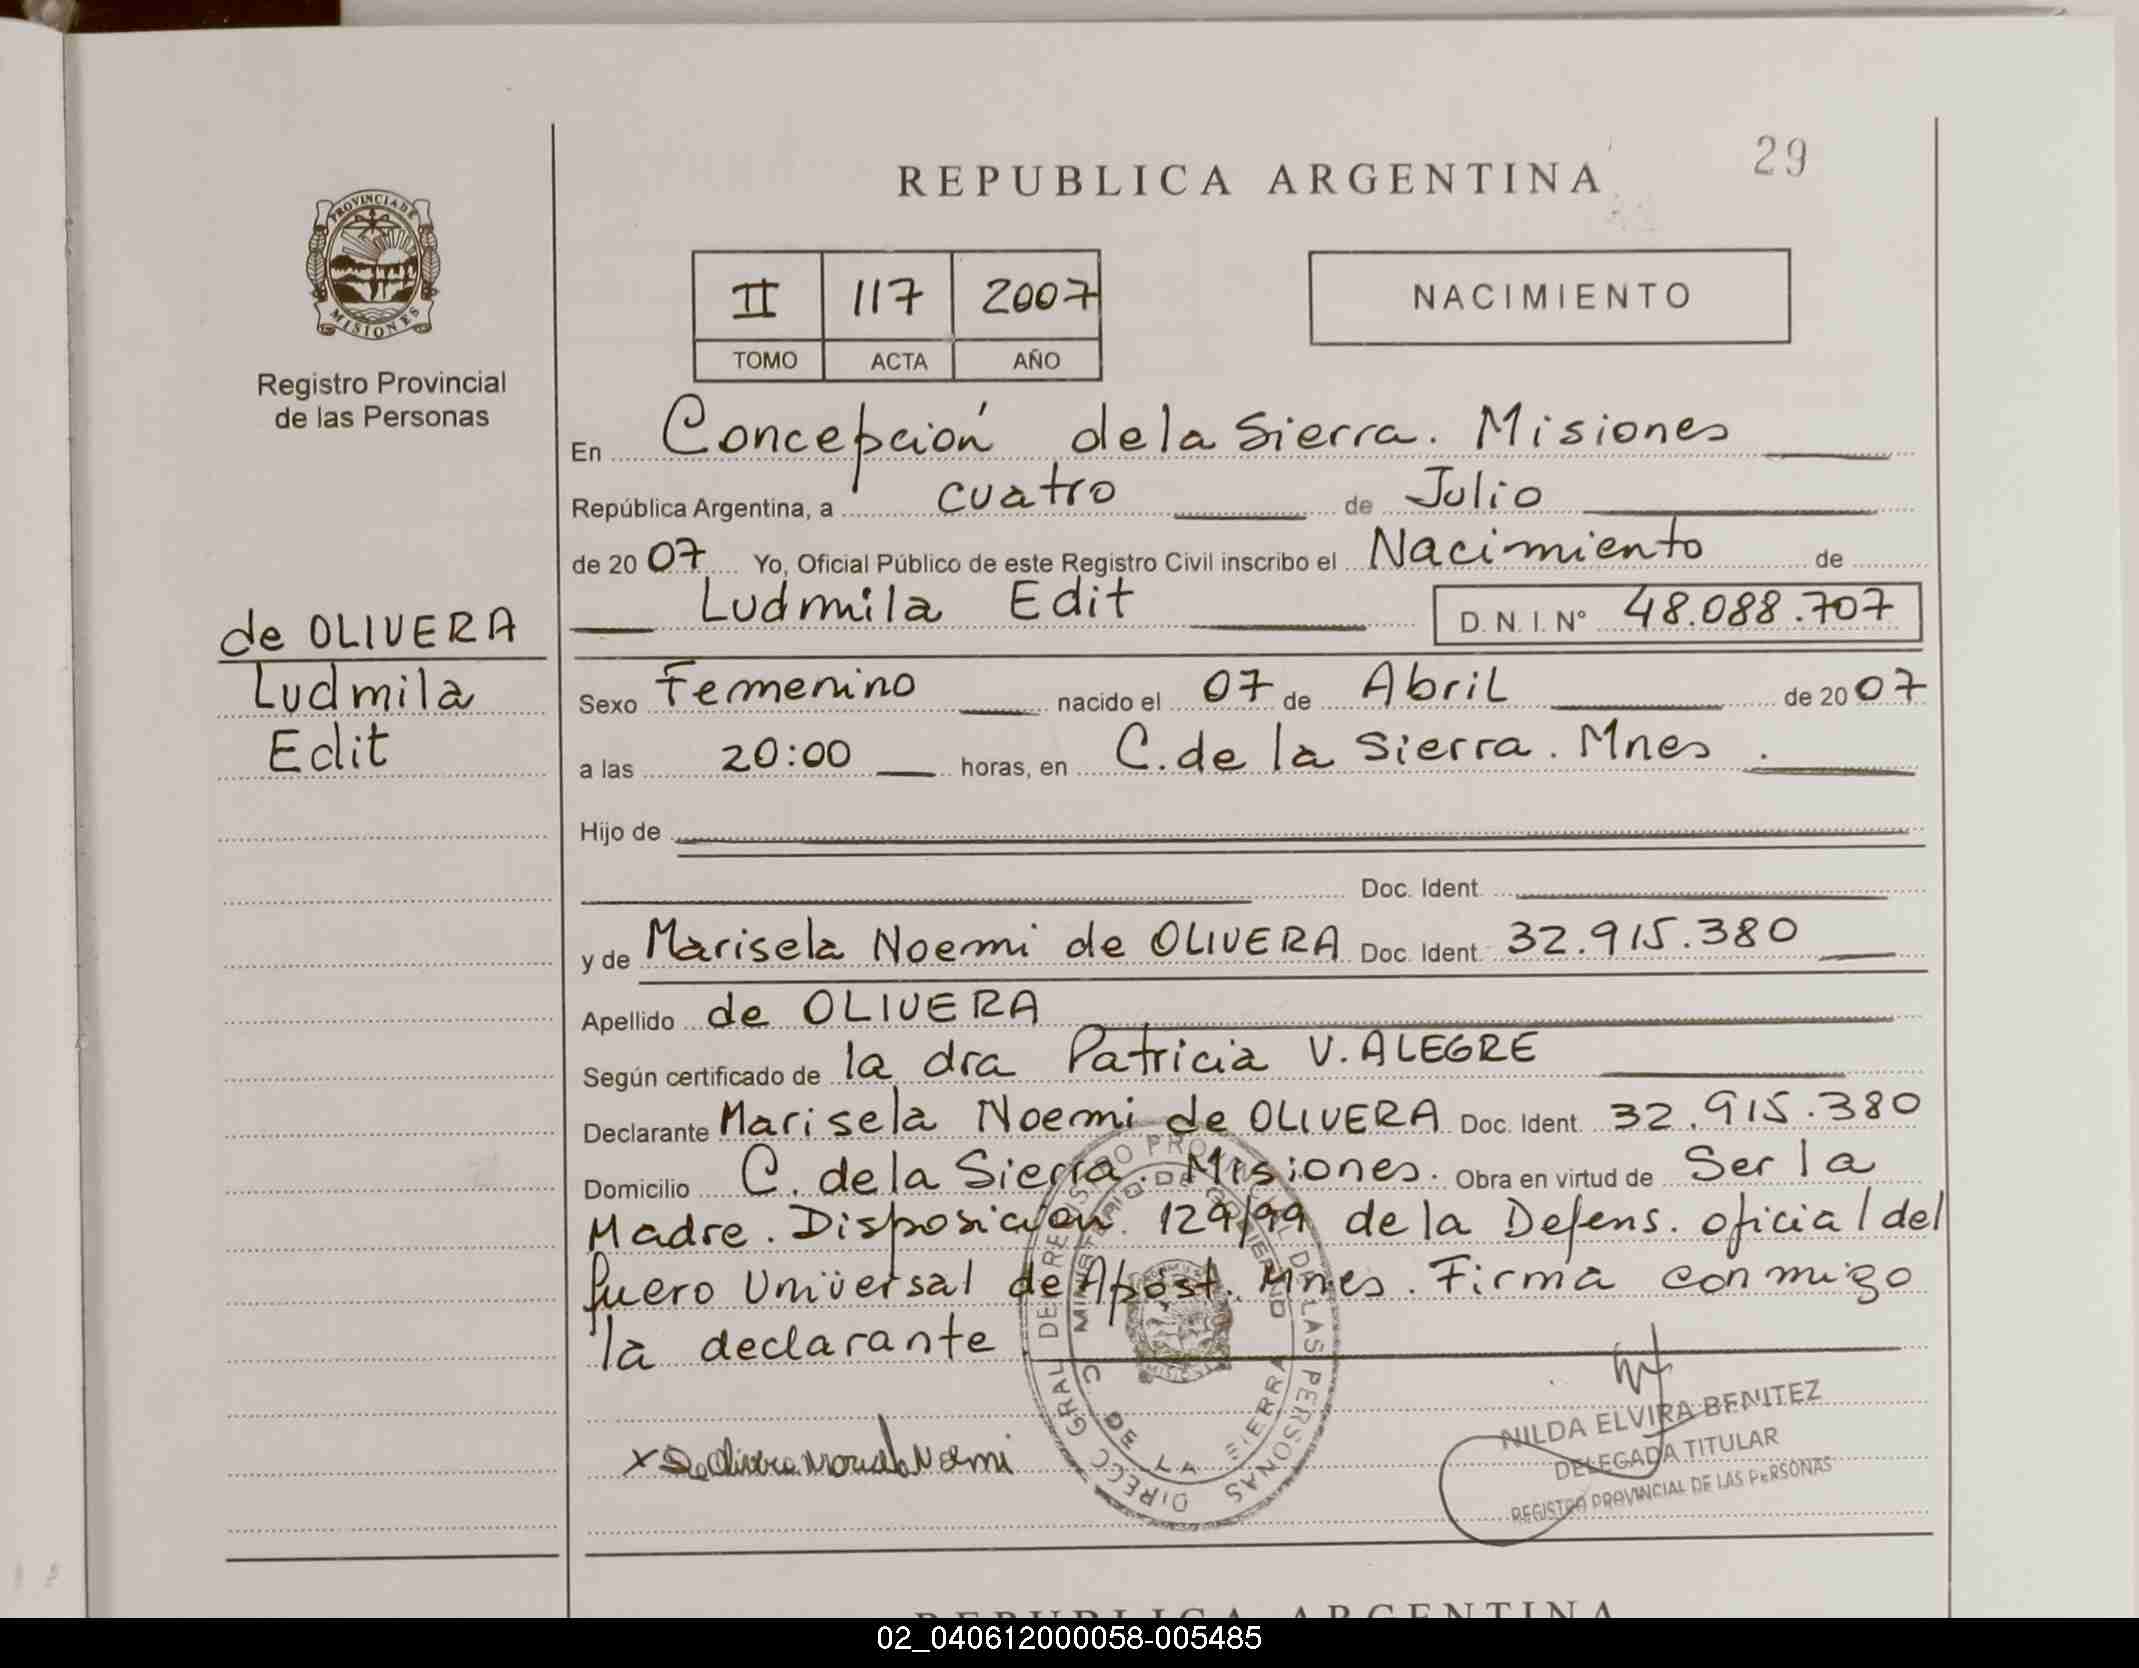 REPUBLICA ARGENTINA
29
PROVINCIA DE MISIONES
Registro Provincial
de las Personas
II 117 2007
TOMO ACTA AÑO
NACIMIENTO
En Concepción de la Sierra. Misiones
República Argentina, a cuatro de Julio
de 2007 Yo, Oficial Público de este Registro Civil inscribo el Nacimiento de
Ludmila Edit D. N. I. N° 48.088.707
de OLIVERA
Ludmila
Edit
Sexo Femenino nacido el 07 de Abril de 2007
a las 20:00 horas, en C. de la Sierra. Mnes.
Hijo de
Doc. Ident.
y de Marisela Noemi de OLIVERA Doc. Ident. 32.915.380
Apellido de OLIVERA
Según certificado de la dra Patricia V. ALEGRE
Declarante Marisela Noemi de OLIVERA Doc. Ident. 32.915.380
Domicilio C. de la Sierra. Misiones. Obra en virtud de Ser la
Madre. Disposición 129/99 de la Defens. oficial del
fuero Universal de Apóst. Mnes. Firma conmigo
la declarante.
DIRECC GRAL DE REGISTRO PROVINCIAL DE LAS PERSONAS
MINISTERIO DE GOBIERNO
C. DE LA SIERRA
x De Olivera Marisela Noemi
NILDA ELVIRA BENITEZ
DELEGADA TITULAR
REGISTRO PROVINCIAL DE LAS PERSONAS
REPUBLICA ARGENTINA
02_040612000058-005485